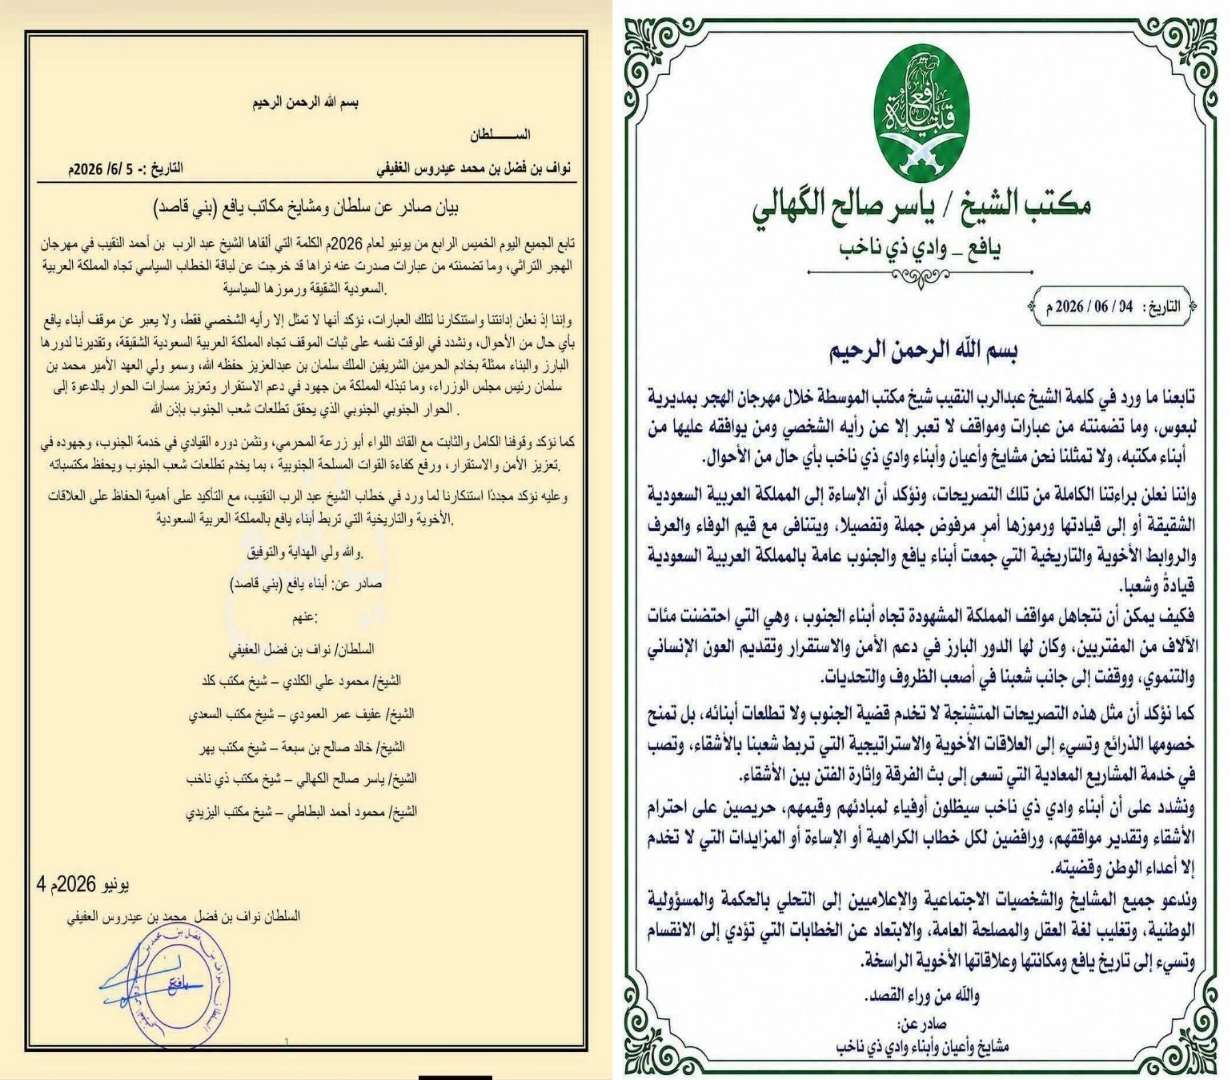 بسم الله الرحمن الرحيم
الســـــلطان
نواف بن فضل بن محمد عيدروس العفيفي
التاريخ :- 5 /6/ 2026م
بيان صادر عن سلطان ومشايخ مكاتب يافع (بني قاصد)
تابع الجميع اليوم الخميس الرابع من يونيو لعام 2026م الكلمة التي ألقاها الشيخ عبد الرب بن أحمد النقيب في مهرجان
الهجر التراثي، وما تضمنته من عبارات صدرت عنه نراها قد خرجت عن لباقة الخطاب السياسي تجاه المملكة العربية
السعودية الشقيقة ورموزها السياسية.
وإننا إذ نعلن إدانتنا واستنكارنا لتلك العبارات، نؤكد أنها لا تمثل إلا رأيه الشخصي فقط، ولا يعبر عن موقف أبناء يافع
بأي حال من الأحوال، ونشدد في الوقت نفسه على ثبات الموقف تجاه المملكة العربية السعودية الشقيقة، وتقديرنا لدورها
البارز والبناء ممثلة بخادم الحرمين الشريفين الملك سلمان بن عبدالعزيز حفظه الله، وسمو ولي العهد الأمير محمد بن
سلمان رئيس مجلس الوزراء، وما تبذله المملكة من جهود في دعم الاستقرار وتعزيز مسارات الحوار بالدعوة إلى
الحوار الجنوبي الجنوبي الذي يحقق تطلعات شعب الجنوب بإذن الله .
كما نؤكد وقوفنا الكامل والثابت مع القائد اللواء أبو زرعة المحرمي، ونثمن دوره القيادي في خدمة الجنوب، وجهوده في
تعزيز الأمن والاستقرار، ورفع كفاءة القوات المسلحة الجنوبية ، بما يخدم تطلعات شعب الجنوب ويحفظ مكتسباته.
وعليه نؤكد مجددًا استنكارنا لما ورد في خطاب الشيخ عبد الرب النقيب، مع التأكيد على أهمية الحفاظ على العلاقات
الأخوية والتاريخية التي تربط أبناء يافع بالمملكة العربية السعودية.
والله ولي الهداية والتوفيق.
صادر عن: أبناء يافع (بني قاصد)
عنهم:
السلطان/ نواف بن فضل العفيفي
الشيخ/ محمود علي الكلدي – شيخ مكتب كلد
الشيخ/ عفيف عمر العمودي – شيخ مكتب السعدي
الشيخ/ خالد صالح بن سبعة – شيخ مكتب يهر
الشيخ/ ياسر صالح الكهالي – شيخ مكتب ذي ناخب
الشيخ/ محمود أحمد البطاطي – شيخ مكتب اليزيدي
4 يونيو 2026م
السلطان نواف بن فضل محمد بن عيدروس العفيفي
يافع
قبيلة يافع
مكتب الشيخ / ياسر صالح الگهالي
يافع _ وادي ذي ناخب
التاريخ : 04 / 06 / 2026 م
بسم الله الرحمن الرحيم
تابعنا ما ورد في كلمة الشيخ عبدالرب النقيب شيخ مكتب الموسطة خلال مهرجان الهجر بمديرية
لبعوس، وما تضمنته من عبارات ومواقف لا تعبر إلا عن رأيه الشخصي ومن يوافقه عليها من
أبناء مكتبه، ولا تمثلنا نحن مشايخ وأعيان وأبناء وادي ذي ناخب بأي حال من الأحوال.
وإننا نعلن براءتنا الكاملة من تلك التصريحات، ونؤكد أن الإساءة إلى المملكة العربية السعودية
الشقيقة أو إلى قيادتها ورموزها أمر مرفوض جملة وتفصيلا، ويتنافى مع قيم الوفاء والعرف
والروابط الأخوية والتاريخية التي جمعت أبناء يافع والجنوب عامة بالمملكة العربية السعودية
قيادةً وشعبا.
فكيف يمكن أن نتجاهل مواقف المملكة المشهودة تجاه أبناء الجنوب ، وهي التي احتضنت مئات
الآلاف من المغتربين، وكان لها الدور البارز في دعم الأمن والاستقرار وتقديم العون الإنساني
والتنموي، ووقفت إلى جانب شعبنا في أصعب الظروف والتحديات.
كما نؤكد أن مثل هذه التصريحات المتشنجة لا تخدم قضية الجنوب ولا تطلعات أبنائه، بل تمنح
خصومها الذرائع وتسيء إلى العلاقات الأخوية والاستراتيجية التي تربط شعبنا بالأشقاء، وتصب
في خدمة المشاريع المعادية التي تسعى إلى بث الفرقة وإثارة الفتن بين الأشقاء.
ونشدد على أن أبناء وادي ذي ناخب سيظلون أوفياء لمبادئهم وقيمهم، حريصين على احترام
الأشقاء وتقدير مواقفهم، ورافضين لكل خطاب الكراهية أو الإساءة أو المزايدات التي لا تخدم
إلا أعداء الوطن وقضيته.
وندعو جميع المشايخ والشخصيات الاجتماعية والإعلاميين إلى التحلي بالحكمة والمسؤولية
الوطنية، وتغليب لغة العقل والمصلحة العامة، والابتعاد عن الخطابات التي تؤدي إلى الانقسام
وتسيء إلى تاريخ يافع ومكانتها وعلاقاتها الأخوية الراسخة.
والله من وراء القصد.
صادر عن:
مشايخ وأعيان وأبناء وادي ذي ناخب